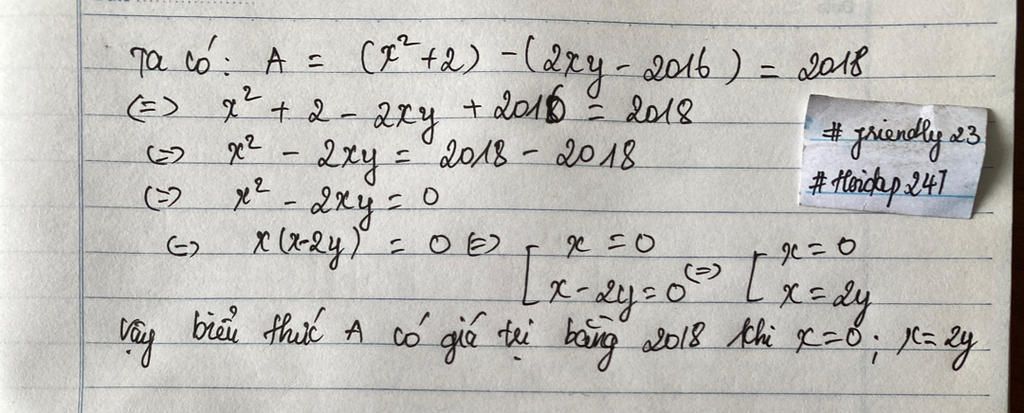 Ta có: A = (x² + 2) - (2xy - 2016) = 2018
(=) x² + 2 - 2xy + 2016 = 2018
(=) x² - 2xy = 2018 - 2018
(=) x² - 2xy = 0
(=) x(x-2y) = 0 (=) [ x = 0 (=) [ x = 0
x - 2y = 0 x = 2y
Vậy biểu thức A có giá trị bằng 2018 khi x = 0 ; x = 2y
# friendly 23
# Hoidap 247